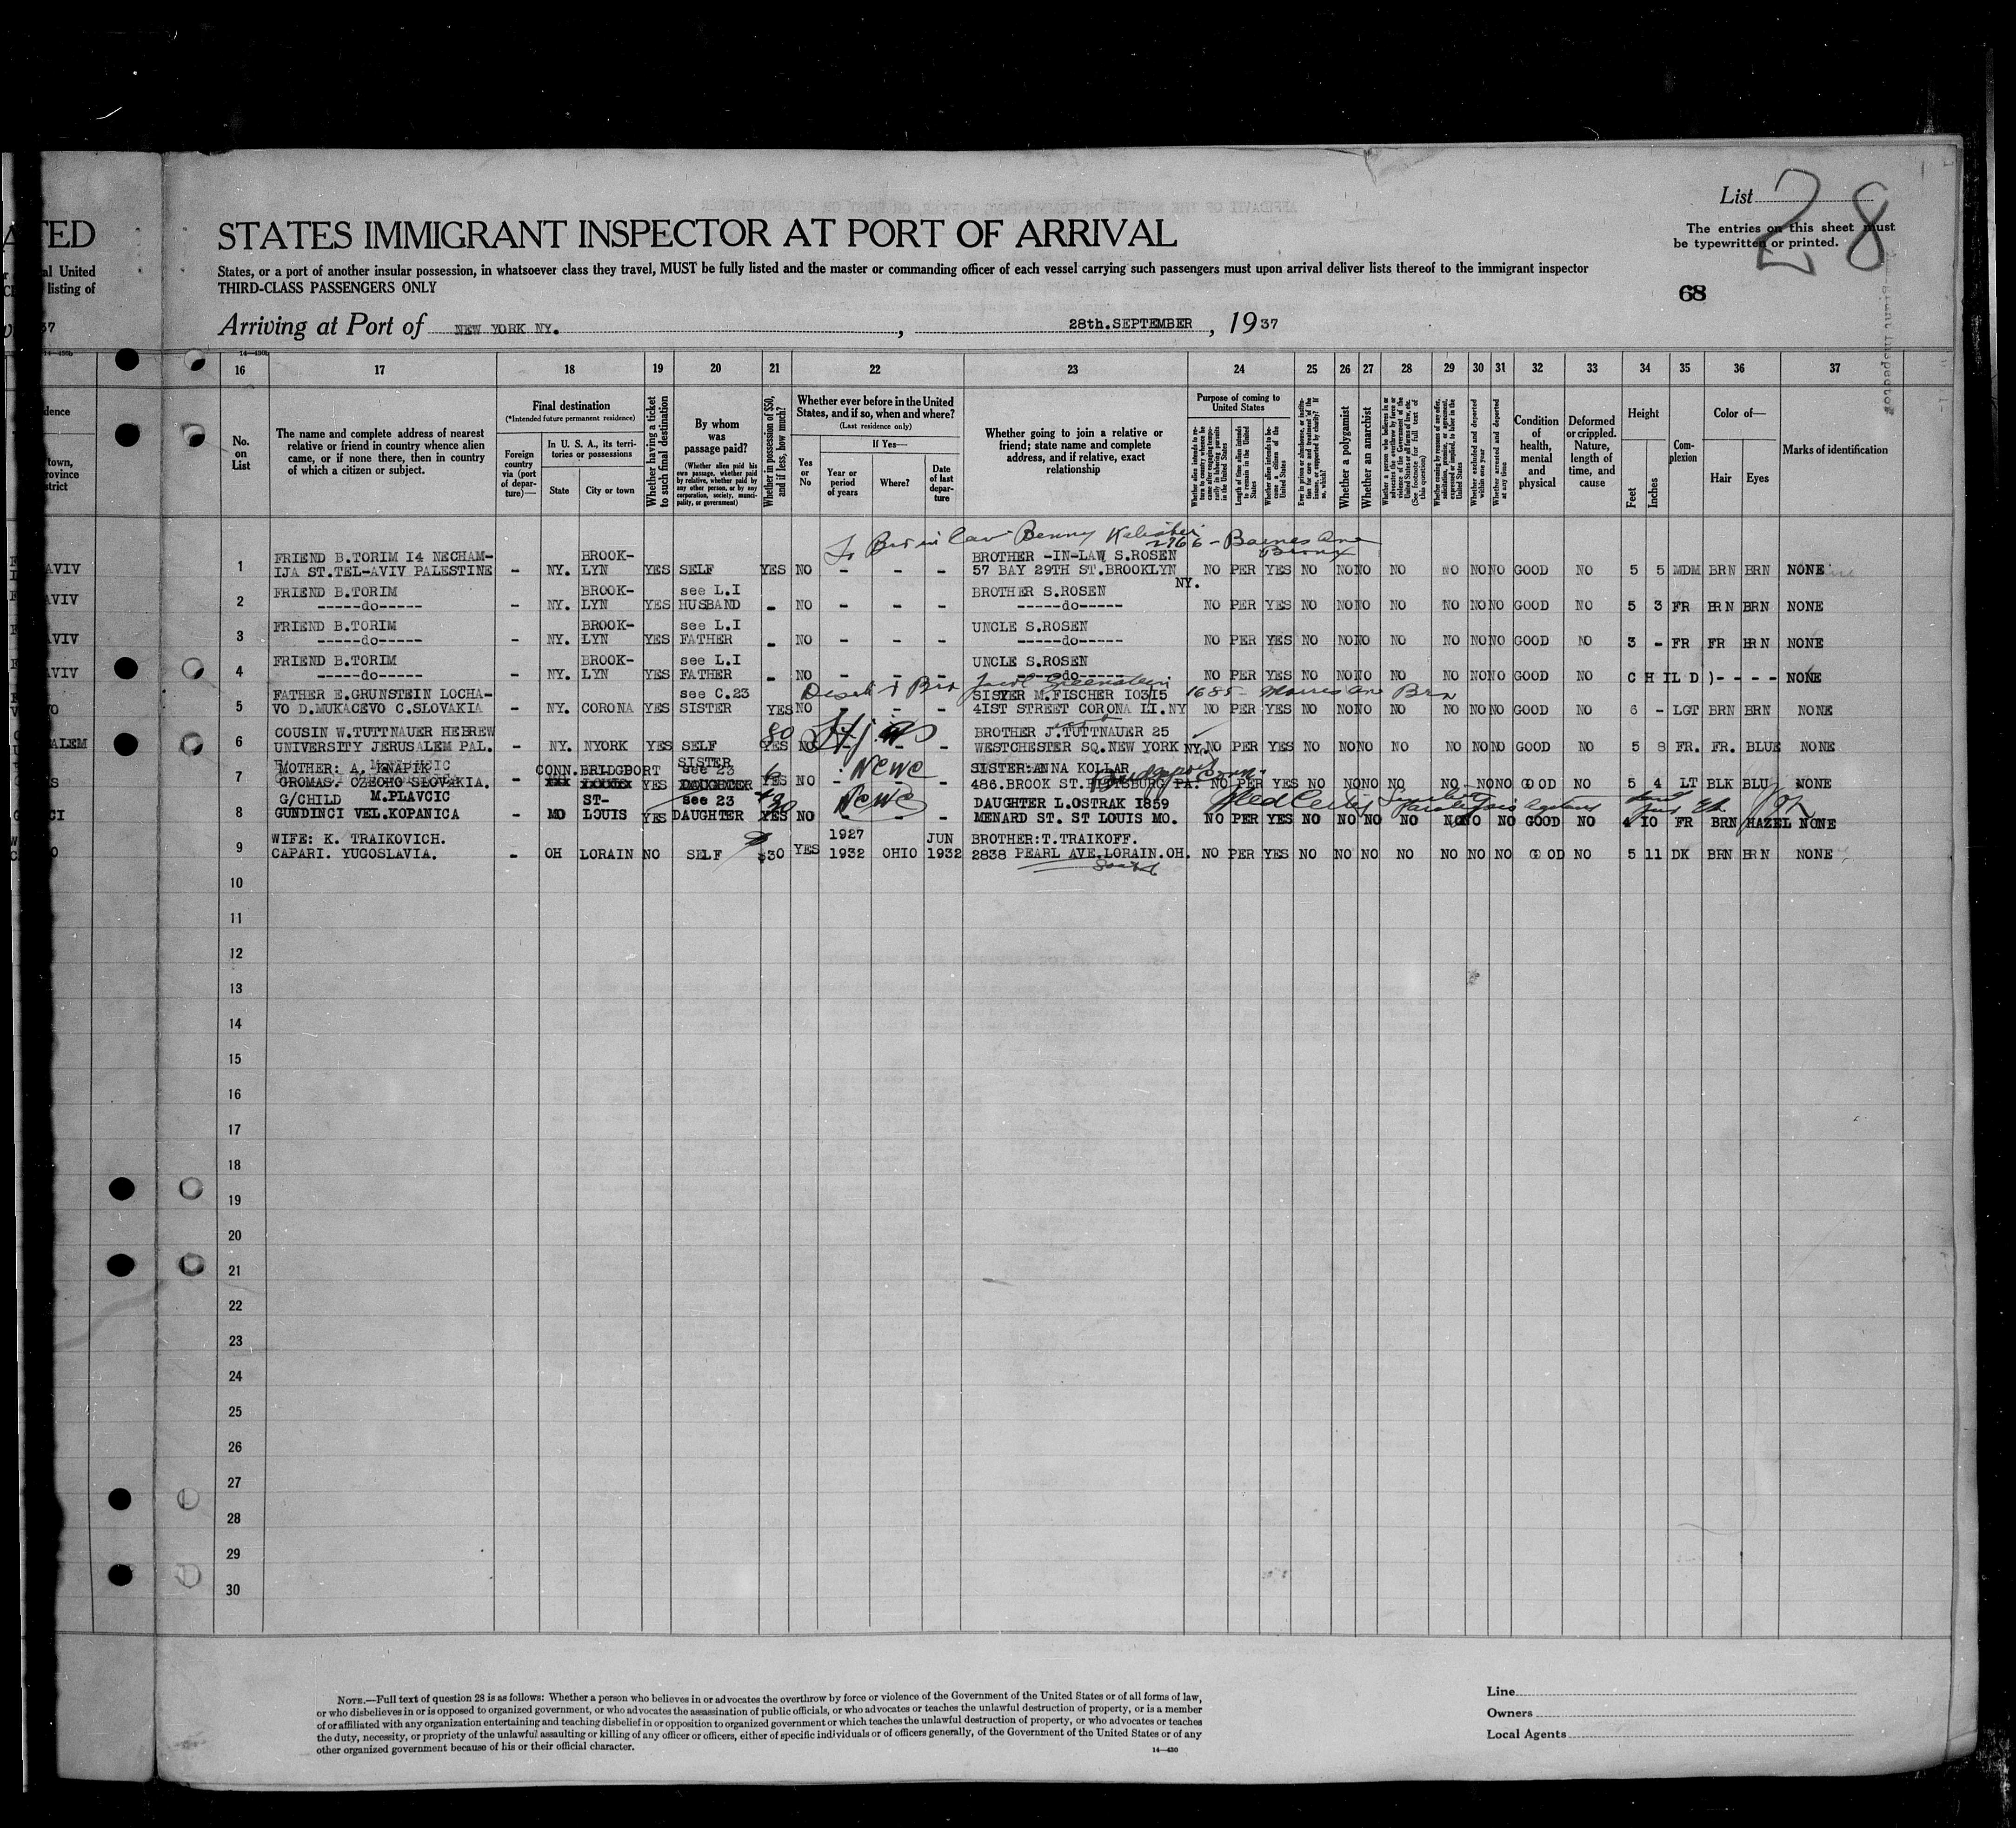 List 28
The entries on this sheet must
be typewritten or printed.
TED
STATES IMMIGRANT INSPECTOR AT PORT OF ARRIVAL
al United
listing of
States, or a port of another insular possession, in whatsoever class they travel, MUST be fully listed and the master or commanding officer of each vessel carrying such passengers must upon arrival deliver lists thereof to the immigrant inspector
THIRD-CLASS PASSENGERS ONLY
68
37
Arriving at Port of NEW YORK NY. , 28th.SEPTEMBER , 1937
14—430b
16 17 18 19 20 21 22 23 24 25 26 27 28 29 30 31 32 33 34 35 36 37
No. on List
The name and complete address of nearest relative or friend in country whence alien came, or if none there, then in country of which a citizen or subject.
Final destination
(*Intended future permanent residence)
Foreign country via (port of departure)—
In U. S. A., its territories or possessions
State
City or town
Whether having a ticket to such final destination
By whom was passage paid?
(Whether alien paid his own passage, whether paid by relative, whether paid by any other person, or by any corporation, society, municipality, or government)
Whether in possession of $50, and if less, how much?
Whether ever before in the United States, and if so, when and where?
(Last residence only)
Yes or No
If Yes—
Year or period of years
Where?
Date of last departure
Whether going to join a relative or friend; state name and complete address, and if relative, exact relationship
Purpose of coming to United States
Length of time alien intends to remain in the United States
Whether alien intends to become a citizen of the United States
Whether a polygamist
Whether an anarchist
Whether excluded and deported within one year
Whether arrested and deported at any time
Condition of health, mental and physical
Deformed or crippled. Nature, length of time, and cause
Height
Feet
Inches
Complexion
Color of—
Hair
Eyes
Marks of identification
To Bro in law Benny
2966 - Barnes Ave
Bronx
FRIEND B.TORIM 14 NECHAM- BROOK- BROTHER -IN-LAW S.ROSEN
1 IJA ST.TEL-AVIV PALESTINE - NY. LYN YES SELF YES NO - - - 57 BAY 29TH ST.BROOKLYN NO PER YES NO NO NO NO NO NO NO GOOD NO 5 5 MDM BRN BRN NONE
NY.
FRIEND B.TORIM BROOK- see L.I BROTHER S.ROSEN
2 -----do----- - NY. LYN YES HUSBAND - NO - - - -----do----- NO PER YES NO NO NO NO NO NO NO GOOD NO 5 3 FR BRN BRN NONE
FRIEND B.TORIM BROOK- see L.I UNCLE S.ROSEN
3 -----do----- - NY. LYN YES FATHER - NO - - - -----do----- NO PER YES NO NO NO NO NO NO NO GOOD NO 3 - FR FR BRN NONE
FRIEND B.TORIM BROOK- see L.I UNCLE S.ROSEN
4 -----do----- - NY. LYN YES FATHER - NO - - - -----do----- NO PER YES NO NO NO NO NO NO NO GOOD NO C H IL D ) - - - - NONE
1685 - Morris Ave Brx
FATHER E.GRUNSTEIN LOCHA- see C.23 SISTER M.FISCHER 10315
5 VO D.MUKACEVO C.SLOVAKIA - NY. CORONA YES SISTER YES NO - - 41ST STREET CORONA LI.NY NO PER YES NO NO NO NO NO NO NO GOOD NO 6 - LGT BRN BRN NONE
COUSIN W.TUTTNAUER HEBREW 80 BROTHER J.TUTTNAUER 25
6 UNIVERSITY JERUSALEM PAL. - NY. NYORK YES SELF YES NO - - WESTCHESTER SQ.NEW YORK NY. NO PER YES NO NO NO NO NO NO NO GOOD NO 5 8 FR. FR. BLUE NONE
MOTHER: A. KNAPIK CONN. BRIDGEPORT SISTER SISTER:ANNA KOLLAR
7 GROMAS. CZECHO SLOVAKIA. - YES see 23 YES NO - - - 486.BROOK ST. PA. NO PER YES NO NO NO NO NO NO NO GOOD NO 5 4 LT BLK BLU NONE
Bridgeport Conn.
G/CHILD M.PLAVCIC ST- see 23 DAUGHTER L.OSTRAK 1859
8 GUNDINCI VEL.KOPANICA - MO LOUIS YES DAUGHTER YES NO - - - MENARD ST. ST LOUIS MO. NO PER YES NO NO NO NO NO NO NO GOOD NO 4 10 FR BRN HAZEL NONE
WIFE: K. TRAIKOVICH. 1927 JUN BROTHER:T.TRAIKOFF.
9 CAPARI. YUGOSLAVIA. - OH LORAIN NO SELF $30 YES 1932 OHIO 1932 2838 PEARL AVE.LORAIN.OH. NO PER YES NO NO NO NO NO NO NO GOOD NO 5 11 DK BRN BRN NONE
10
11
12
13
14
15
16
17
18
19
20
21
22
23
24
25
26
27
28
29
30
NOTE.—Full text of question 28 is as follows: Whether a person who believes in or advocates the overthrow by force or violence of the Government of the United States or of all forms of law,
or who disbelieves in or is opposed to organized government, or who advocates the assassination of public officials, or who advocates or teaches the unlawful destruction of property, or is a member
of or affiliated with any organization entertaining and teaching disbelief in or opposition to organized government or which teaches the unlawful destruction of property, or who advocates or teaches
the duty, necessity, or propriety of the unlawful assaulting or killing of any officer or officers, either of specific individuals or of officers generally, of the Government of the United States or of any
other organized government because of his or their official character.
14—430
Line
Owners
Local Agents